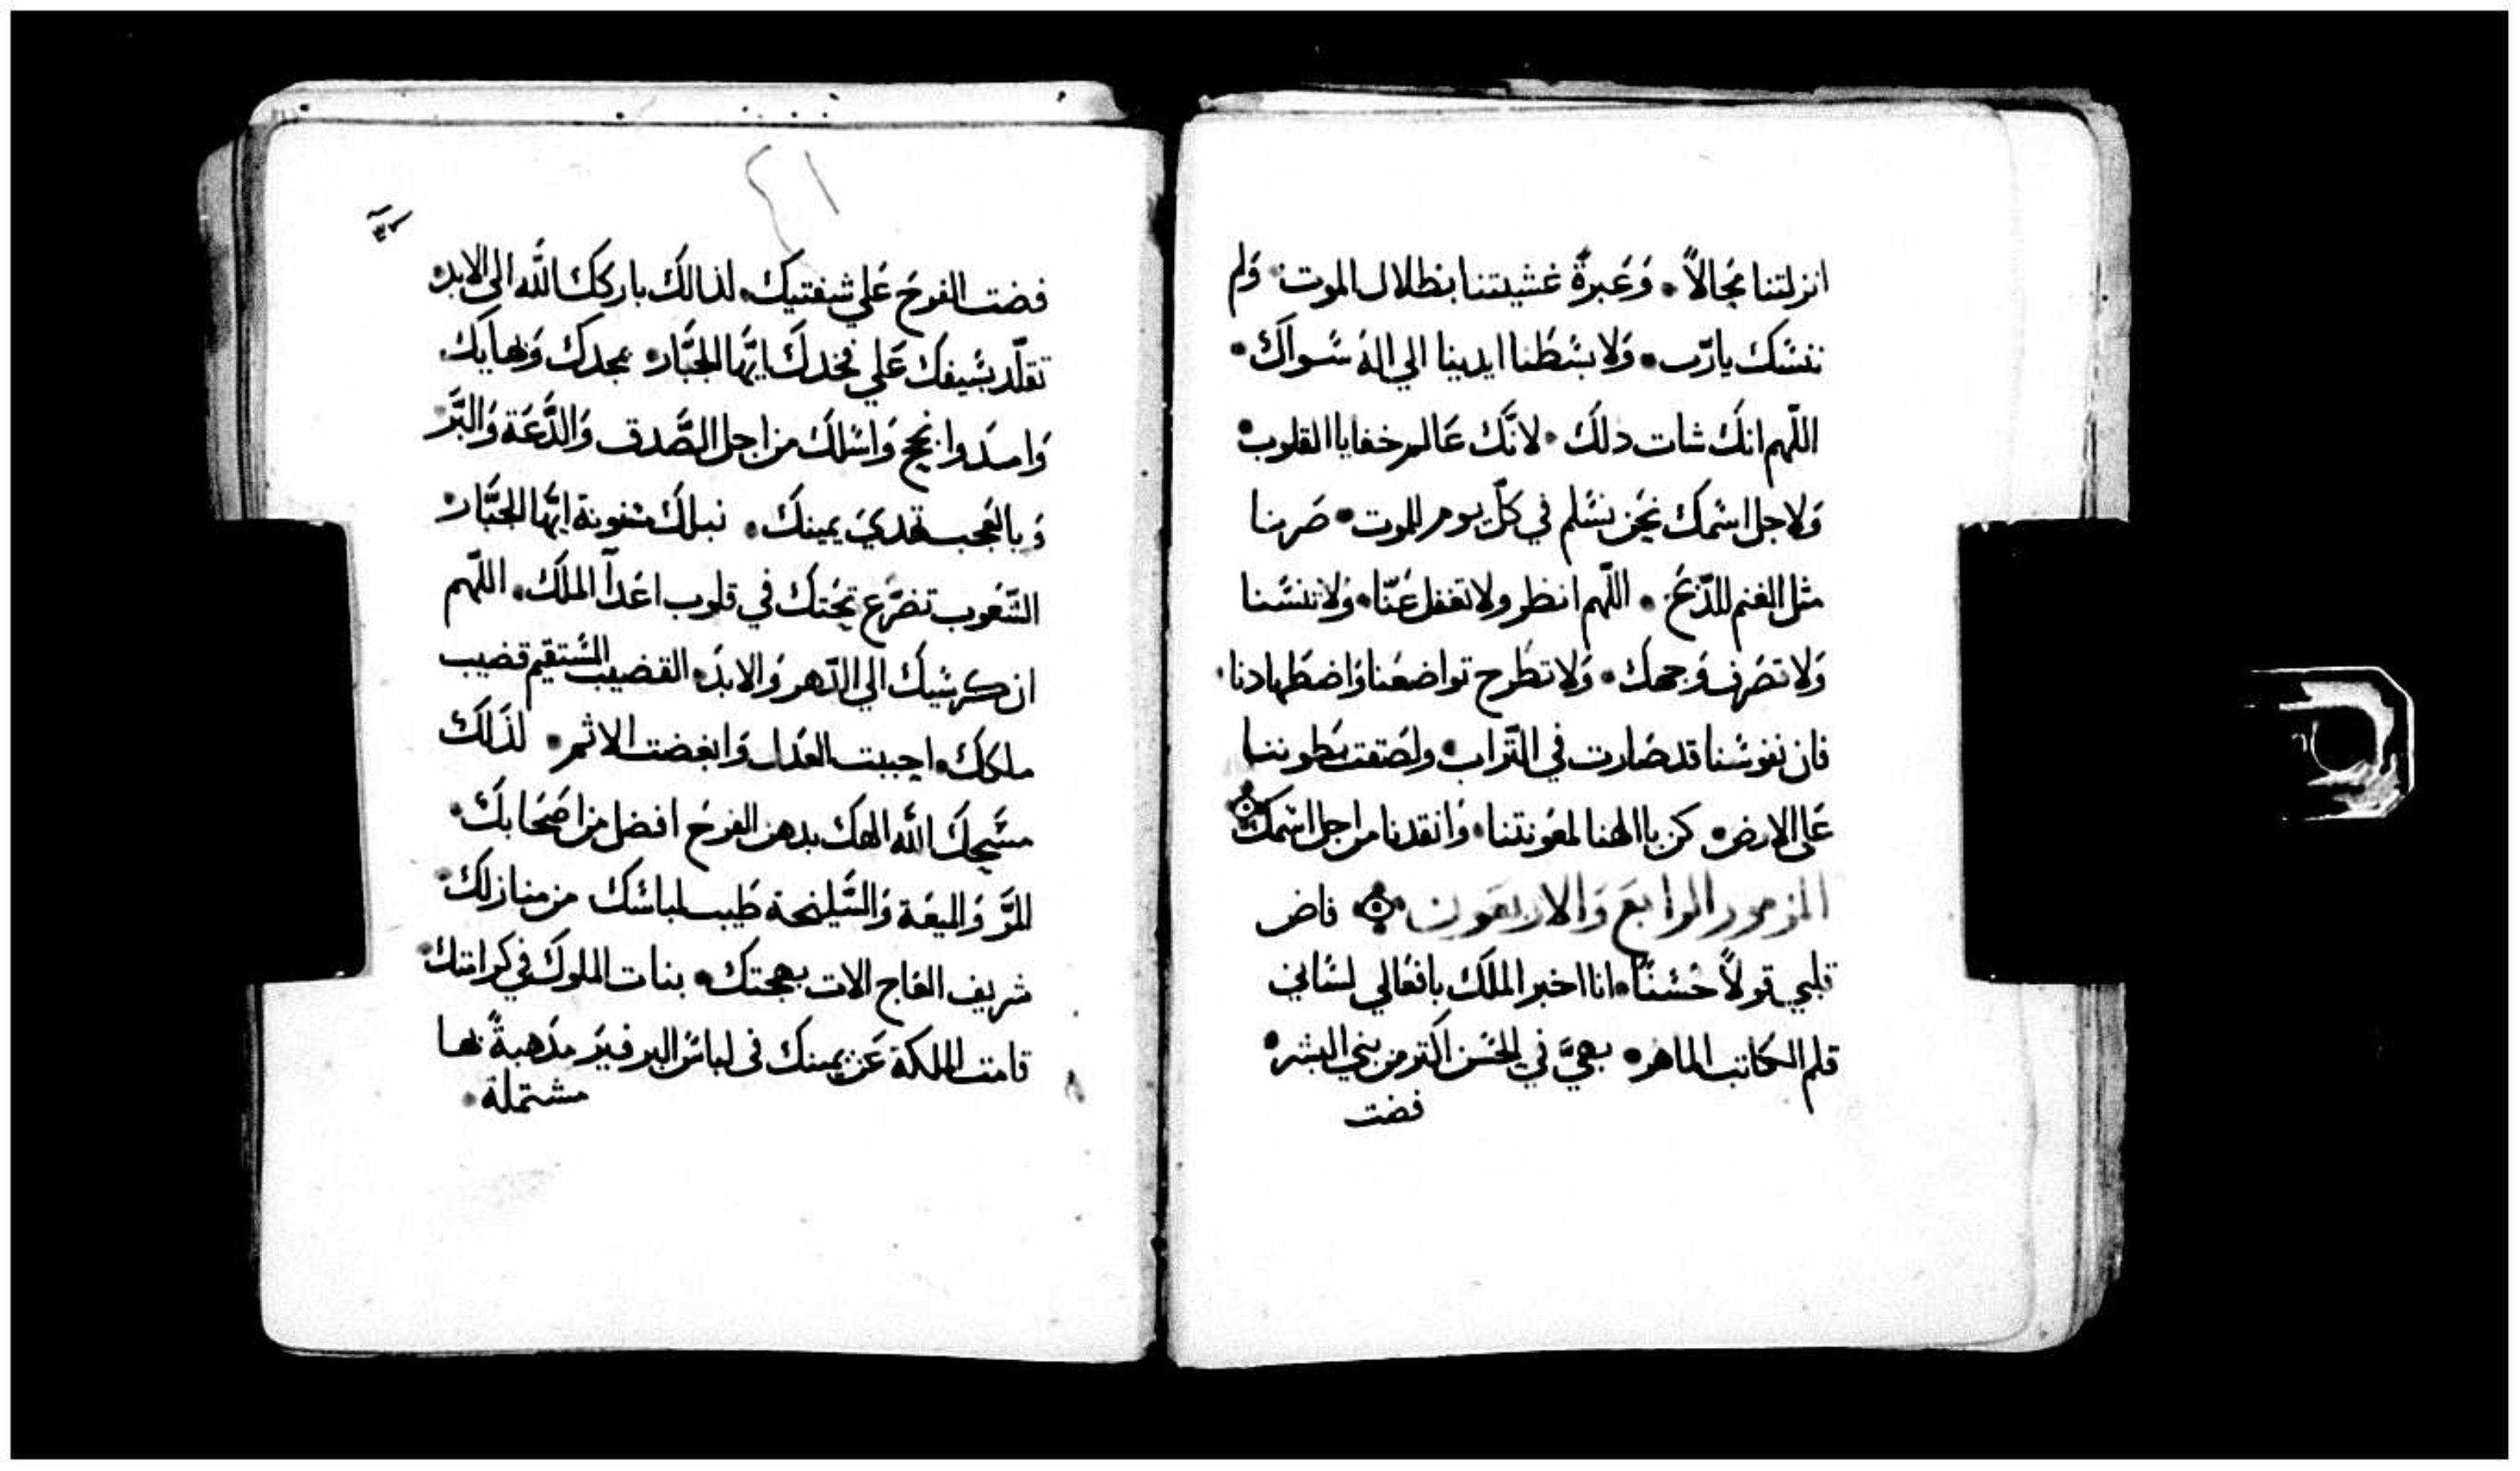 انزلتنا مجَالاً • وَعَبرةً غشيتنا بظلال الموت • وَلم
ننسَك يارَب • وَلا بسَطنا ايدينا الي الهٍ سَواك •
اللّهم انك شات دلك • لانَّك عَالم خفايا القلوب •
وَلاجل اسَمك نحَن نسَلم في كلّ يوم للموت • صَرنا
مثل الغنم للذبَح • اللّهم انظر ولا تغفل عَنّا • وَلا تنسَنا
وَلا تصَرف وَجهك • وَلا تطَرح تواضعَنا وَاضطَهادنا •
فان نفوسَنا قد صَارت في التّراب • ولصَقت بطوننا
عَلي الارض • كن يا الهنا لمعَونتنا • وَانقدنا من اجل اسَمك
المزمور الرابعَ وَالاربعَون فاض
قلبي قولاً حَسَنًا • انا اخبر الملَك بافعَالي لسَاني
قلم الكاتب الماهر • بهيَّ في الحَسَن اكثر من بني البشر •
فضت
٢١
فضت الفرحَ عَلي شفتيك • لذالكَ باركك اللَّه الي الابد •
تقلّد بسَيفك عَلي فخدكَ ايّها الجبَّار • بمجدك وَبهايك •
وَامدد وانجح وَاسَلكَ من اجل الصَّدق وَالدَّعَة وَالبَّر
وَبالعَجب تهديَ يمينك • نبلكَ مسَنونة ايّها الجبَّار •
الشّعَوب تضرَّع تحَتك في قلوب اعَدآ الملَك • اللّهم
ان كرسَيك الي الدّهر وَالابدَ • القضيب المسَتقيم قضيب
ملكك • احببت العَدل وَابغضت الاثم • لذَلَك
مسَّحَكَ اللَّه الهك بدهن الفرحَ افضل من اصَحَابكَ •
المرَّ وَالميعَة وَالسَّليخة طَيب لباسَك من منازلك •
شريف العَاج الات بهجتك • بنات الملوك في كرامتك •
قامت الملكة عَن يمينك في لباسَ البرفيرَ مدَهبةً بها
مشتملة •